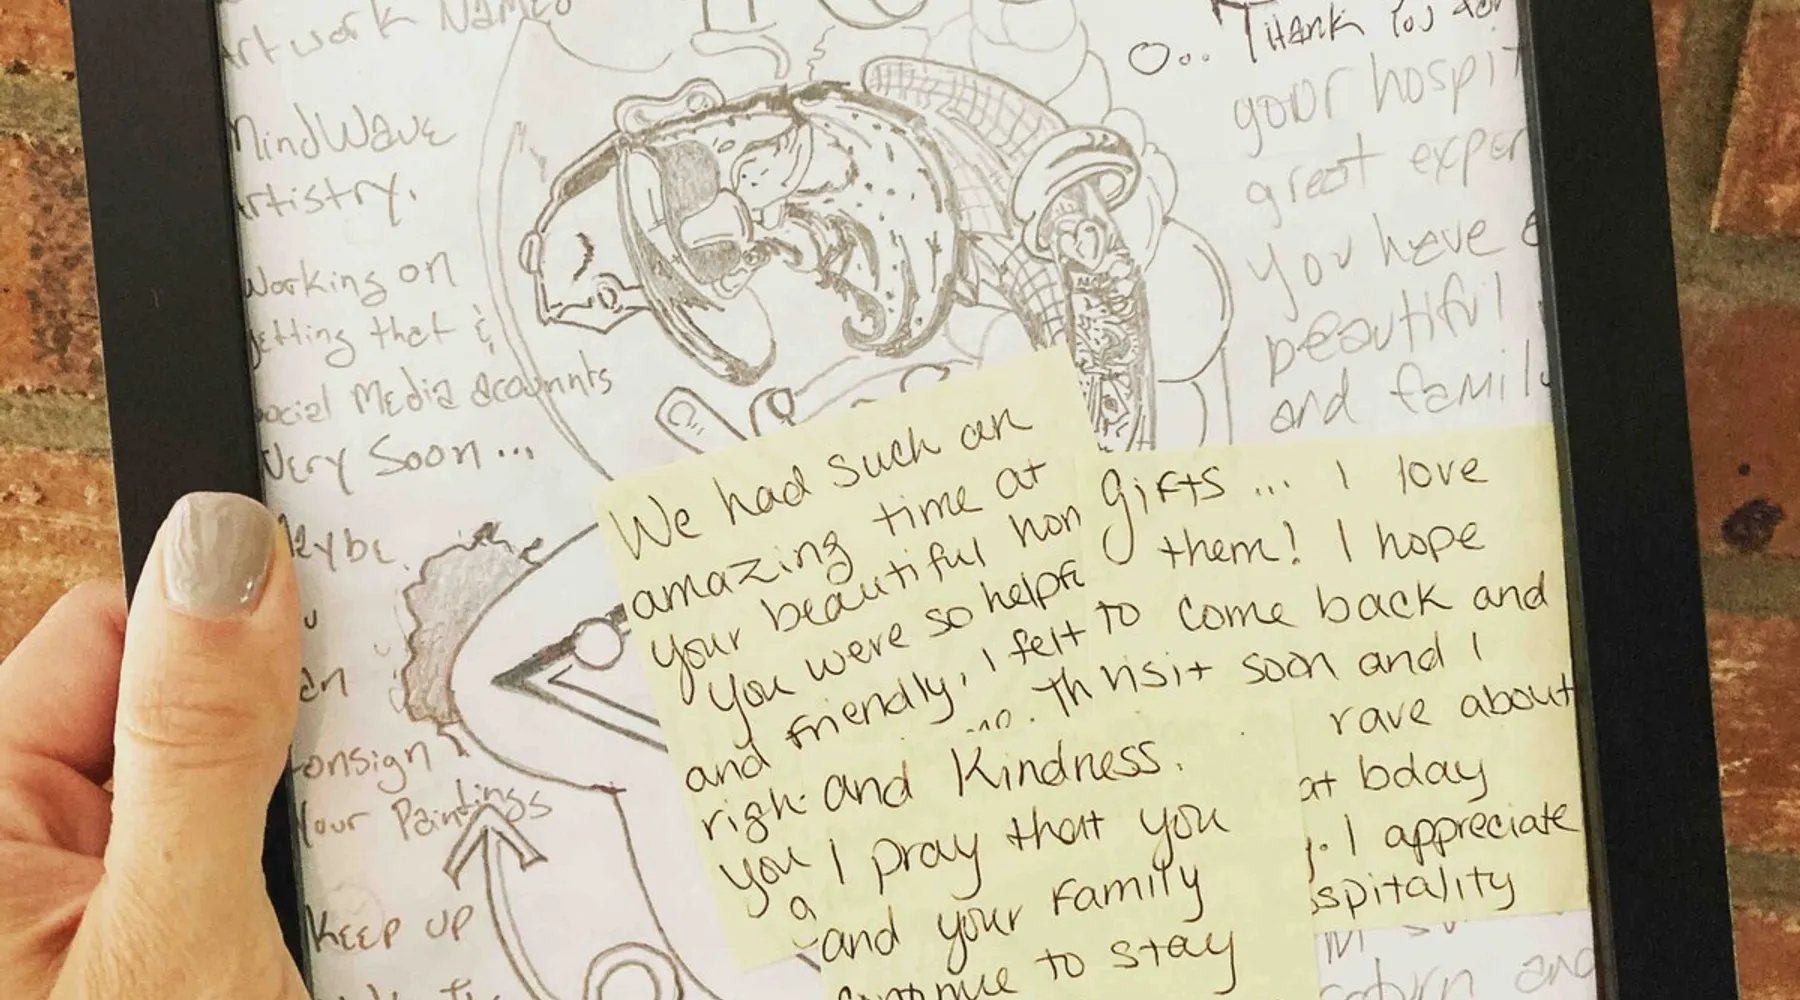 Artwork Names
MindWave
Artistry.
Working on
getting that &
Social Media accounnts
Very Soon...
Maybe
an
Consign
Your Paintings
KEEP UP
O.. Thank You for
your hospit
great exper
you have
beautiful
and family
We had such an
amazing time at
your beautiful hom
you were so helpf
and friendly, I felt
righ
you
a
and Kindness.
I pray that you
and your Family
continue to stay
gifts... I love
them! I hope
to come back and
visit soon and I
rave about
at bday
I appreciate
spitality
return and